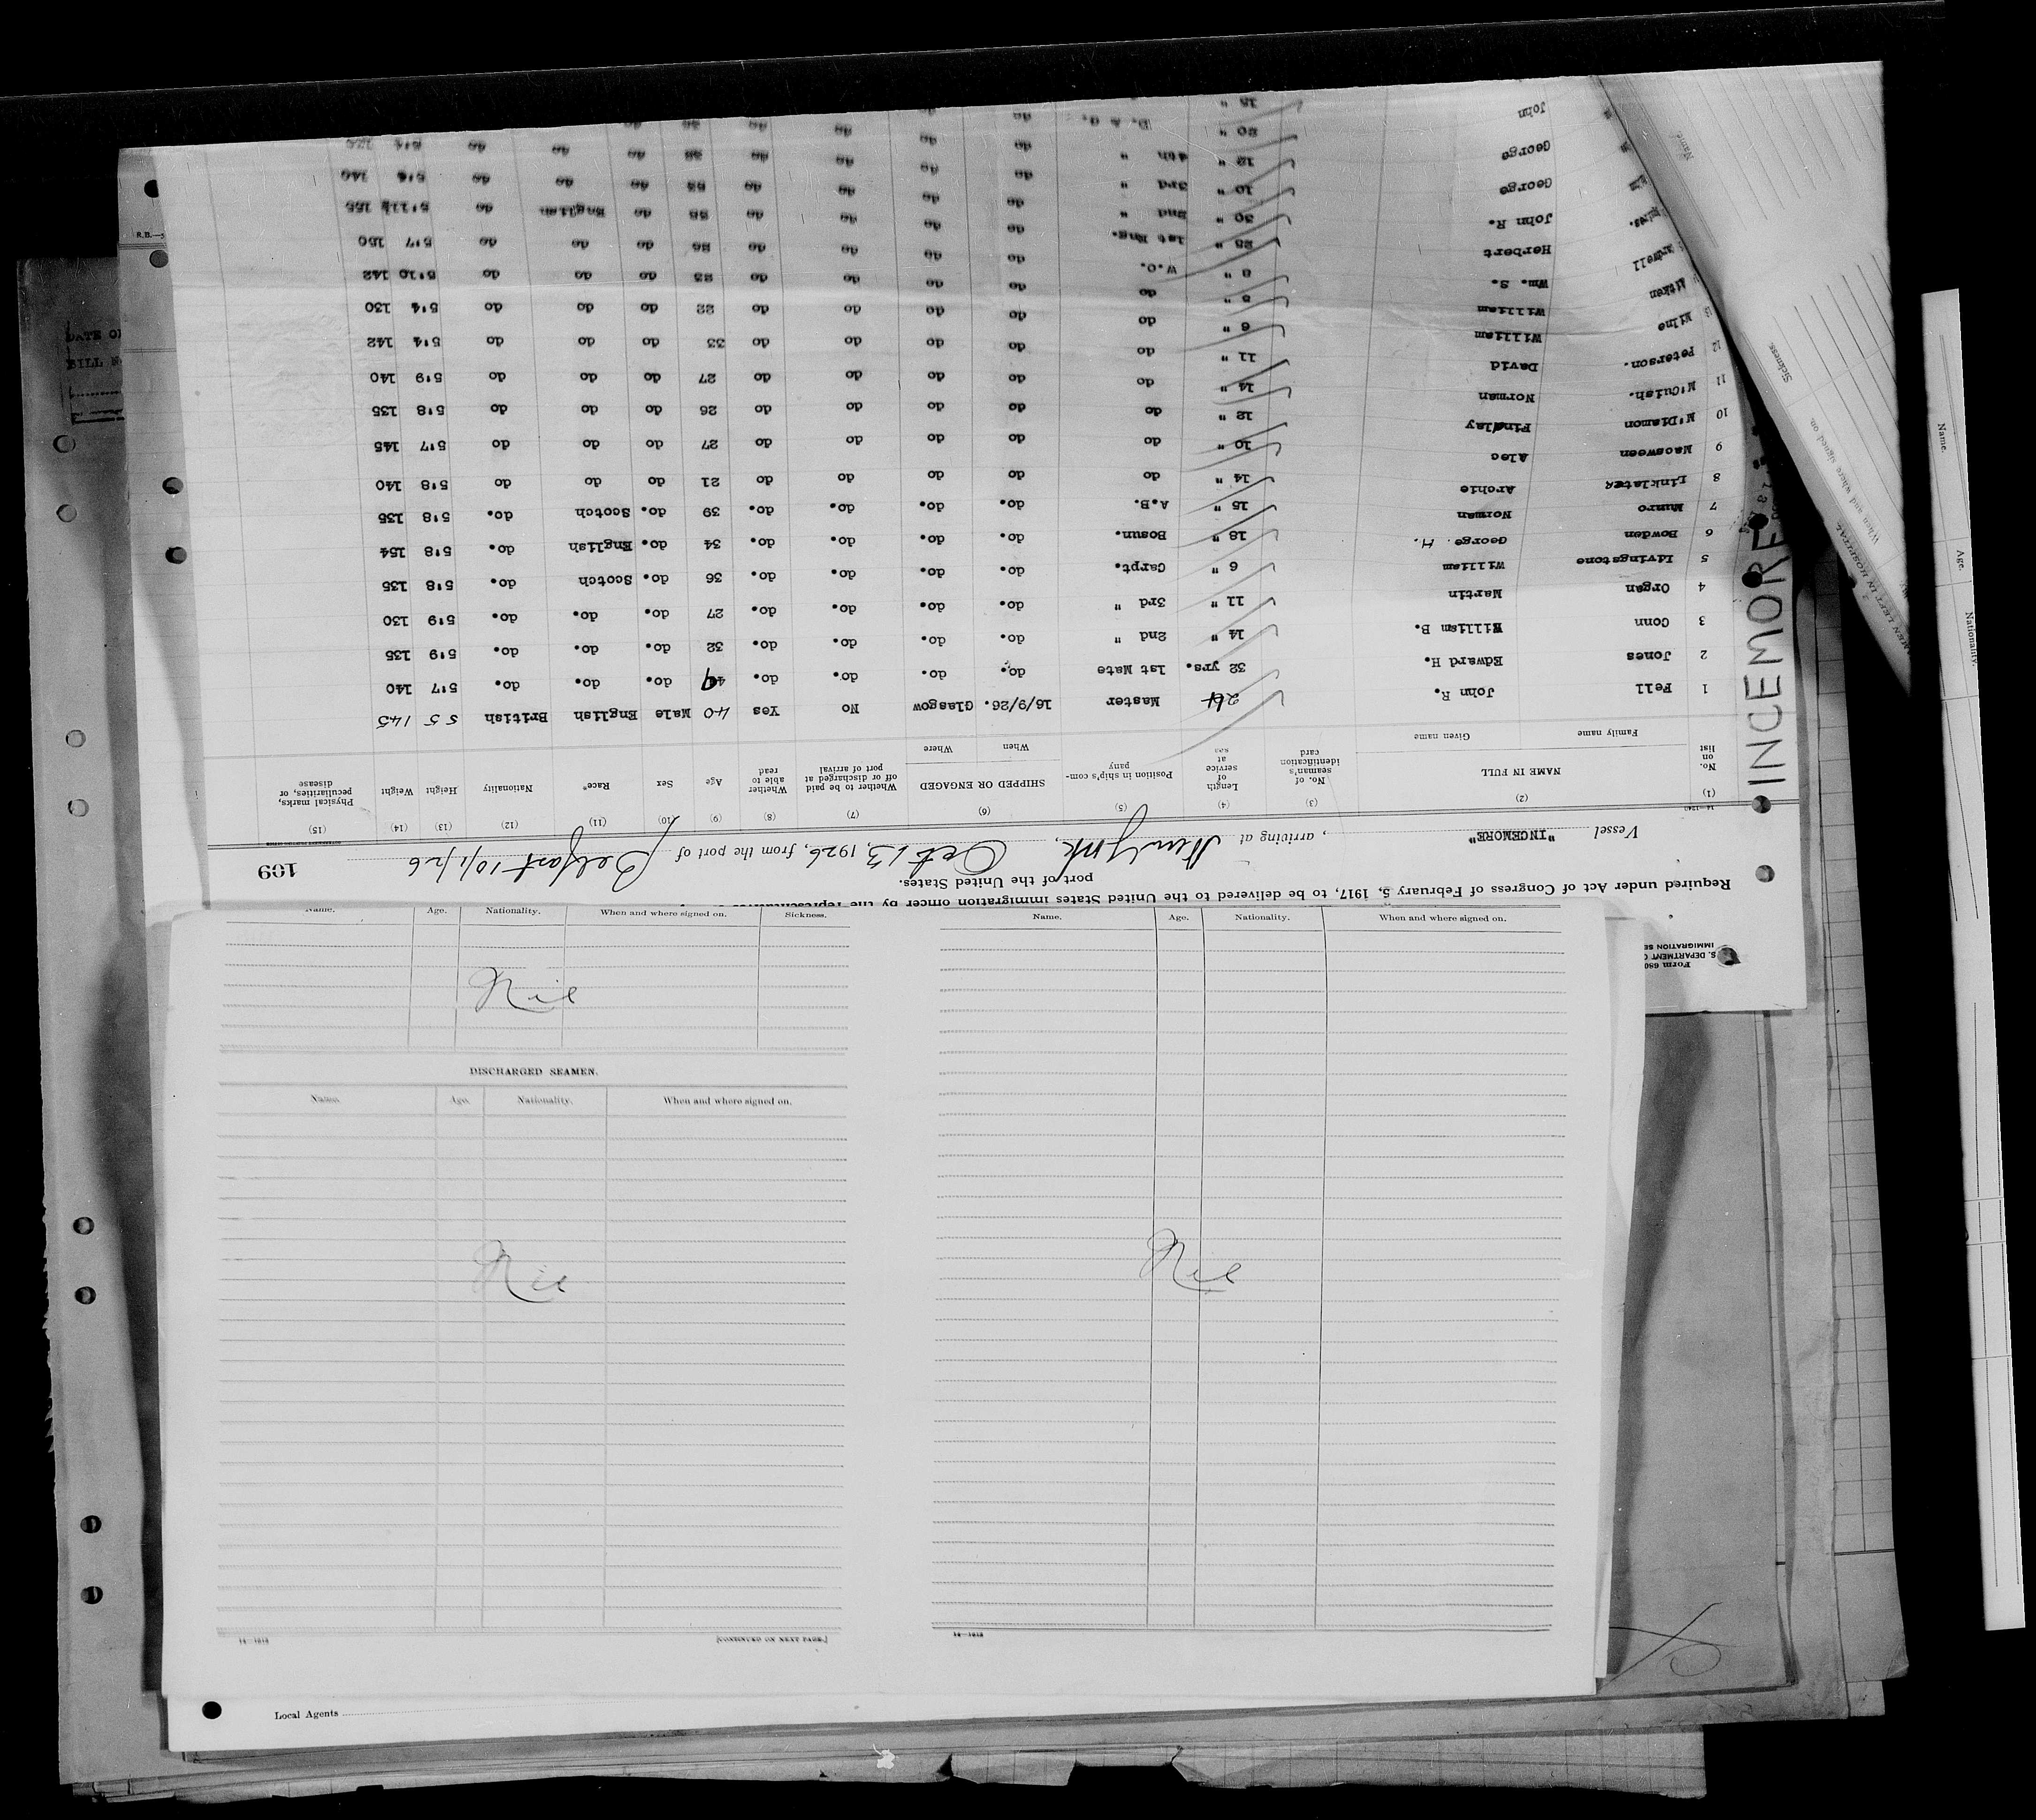 Form 680
S. DEPARTMENT O
IMMIGRATION SE
Required under Act of Congress of February 5, 1917, to be delivered to the United States immigration officer by the representatives of
port of the United States.
Vessel "INCEMORE", arriving at New York, Oct 13, 1926, from the port of Belfast 10/1/26
109
14-1240
(1) (2) (3) (4) (5) (6) (7) (8) (9) (10) (11) (12) (13) (14) (15)
No. on list NAME IN FULL No. of seaman's identification card Length of service at sea Position in ship's company SHIPPED OR ENGAGED Whether to be paid off or discharged at port of arrival Whether able to read Age Sex Race* Nationality Height Weight Physical marks, peculiarities, or disease
Family name Given name When Where
1 Fell John R. 24 Master 16/9/26. Glasgow No Yes 40 Male English British 5 5 145
2 Jones Edward H. 32 yrs. 1st Mate do. do. do. do. 49 do. do. do. 5'7 140
3 Conn William B. 14 " 2nd " do. do. do. do. 32 do. do. do. 5'9 135
4 Organ Martin 11 " 3rd " do. do. do. do. 27 do. do. do. 5'9 130
5 Livingstone William 6 " Carpt. do. do. do. do. 36 do. Scotch do. 5'8 135
6 Bowden George H. 18 " Bosun. do. do. do. do. 34 do. English do. 5'8 154
7 Munro Norman 15 " A.B. do. do. do. do. 39 do. Scotch do. 5'8 135
8 Linklater Archie 14 " do do do do do 21 do do do 5'8 140
9 Macsween Alec 10 " do do do do do 27 do do do 5'7 145
10 M'Diamon Findlay 12 " do do do do do 26 do do do 5'8 135
11 M'Cuish. Norman 14 " do do do do do 27 do do do 5'9 140
12 Peterson. David 11 " do do do do do 33 do do do 5'4 142
13 Milne William 6 " do do do do do 22 do do do 5'4 130
Aitken William 5 " do do do do do 23 do do do 5'10 142
Wm. S. 8 " W.O. do do do do 26 do do do 5'7 150
Herbert 25 " 1st Eng. do do do do 55 do English do 5'11½ 155
John R. 30 " 2nd " do do do do 53 do do do 5'6 140
George 10 " 3rd " do do do do do do do
George 12 " 4th " do do do do
John 20 " D. & G. do
15 "
INCEMORE
Name. Age. Nationality. When and where signed on. Sickness.
Nil
DISCHARGED SEAMEN.
Name. Age. Nationality. When and where signed on.
Nil
14—1212
[CONTINUED ON NEXT PAGE.]
Name. Age. Nationality. When and where signed on.
Nil
14—1212
Local Agents
R.B.—5
DATE OF
BILL N
Name
Sickness.
When and where signed on.
MEN LEFT IN HOSPITAL
Name. Age. Nationality.